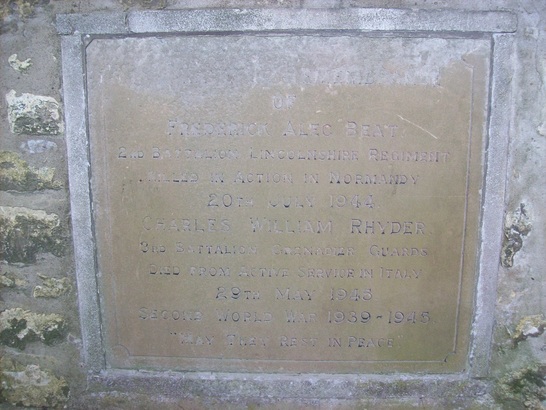 OF
FREDERICK ALEC BEAT
2ND BATTALION LINCOLNSHIRE REGIMENT
KILLED IN ACTION IN NORMANDY
20TH JULY 1944
CHARLES WILLIAM RHYDER
3RD BATTALION GRENADIER GUARDS
DIED FROM ACTIVE SERVICE IN ITALY
29TH MAY 1945
SECOND WORLD WAR 1939-1945
"MAY THEY REST IN PEACE"